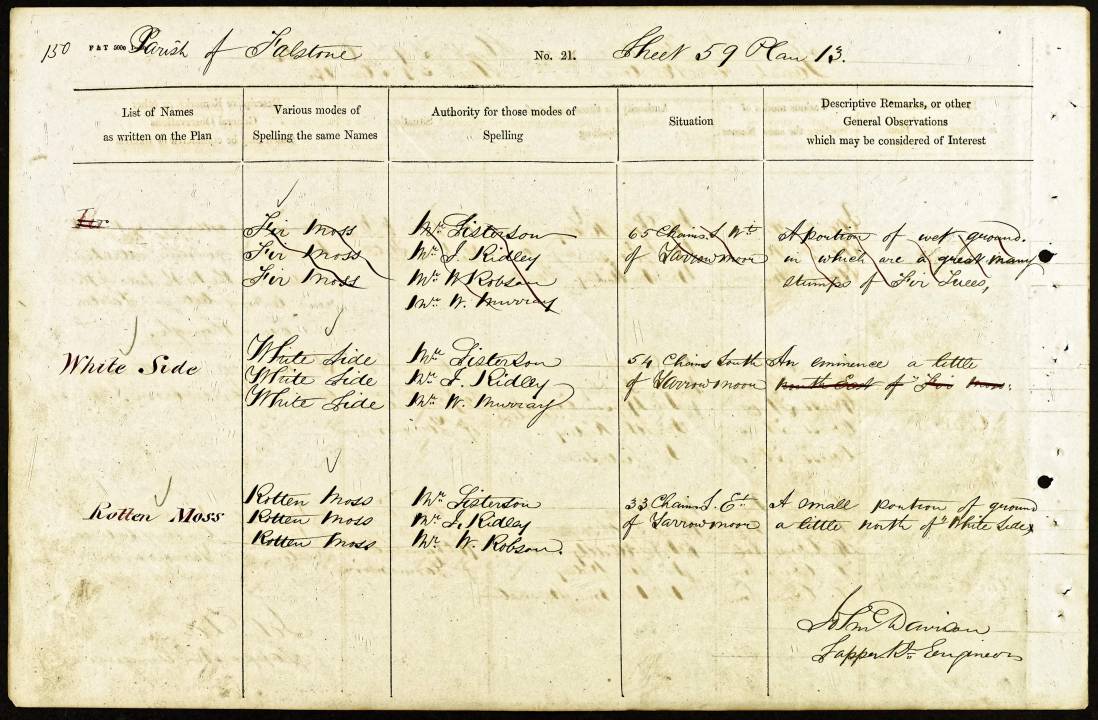 150 Parish of Falstone No. 21. Sheet 59 Plan 13.
List of Names
as written on the Plan
Various modes of
Spelling the same Names
Authority for those modes of
Spelling
Situation
Descriptive Remarks, or other
General Observations
which may be considered of Interest
Fir
Fir Moss
Fir Moss
Fir Moss
Mr Sisterson
Mr J. Ridley
Mr W Robson
Mr W. Murray
65 Chains S. Wt
of Yarrowmoor
A portion of wet ground.
in which are a great many
stumps of Fir Trees,
White Side
White Side
White Side
White Side
Mr Sisterson
Mr J. Ridley
Mr W. Murray
54 Chains South
of Yarrowmoor
An eminence a little
north East of "Fir Moss.
Rotten Moss
Rotten Moss
Rotten Moss
Rotten Moss
Mr Sisterson
Mr J. Ridley
Mr W. Robson.
33 Chains S. Et
of Yarrowmoor
A small portion of ground
a little north of "White Side"
John Davison
Sapper Rl Engineers